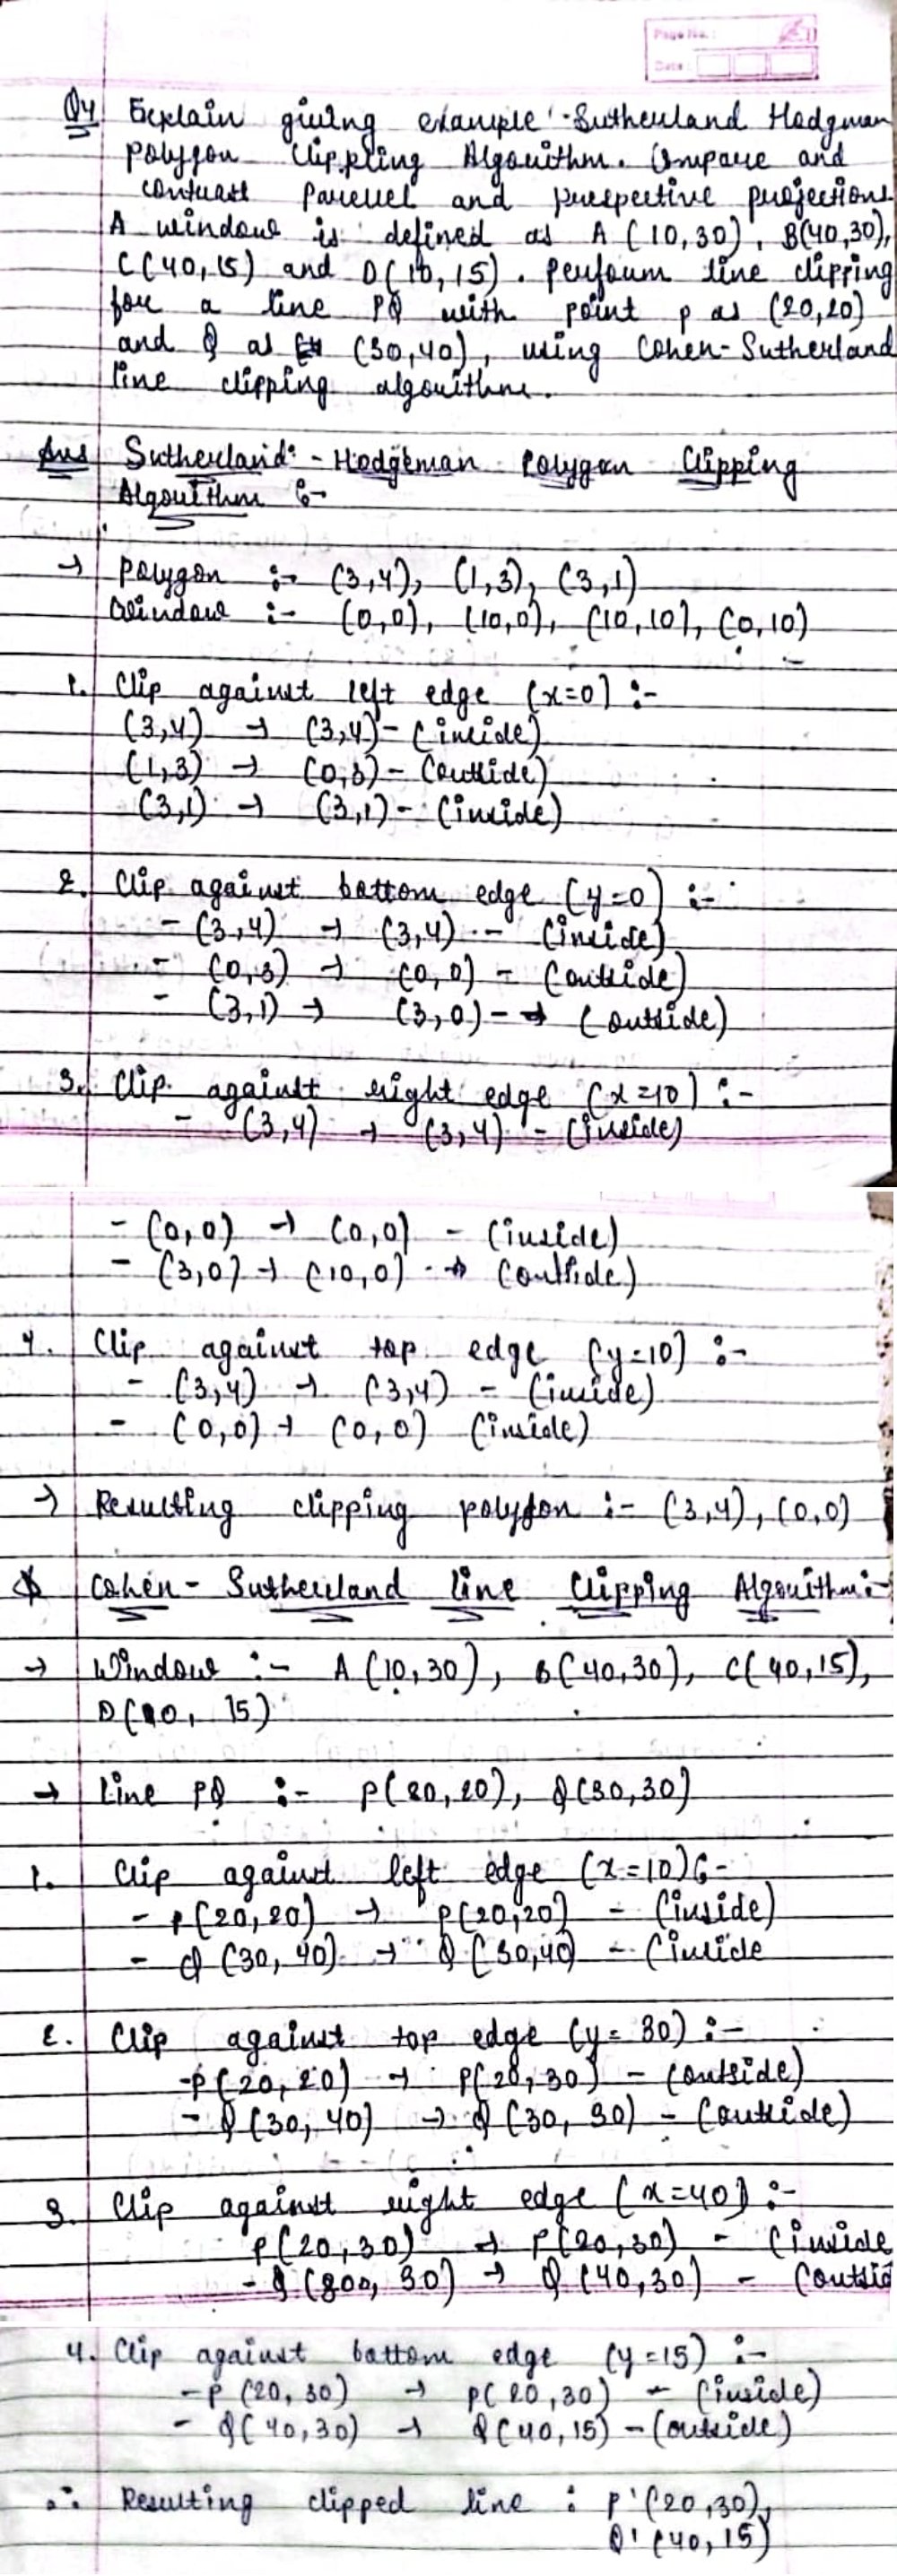 Page No.:
Date:
Q4 Explain giving example :- Sutherland Hodgman
polygon clippling Algorithm. Compare and
contrast parellel and perspective projections.
A window is defined as A (10,30), B(40,30),
C(40,15) and D(10,15). perform line clipping
for a line PQ with point p as (20,20)
and Q as (30,40), using Cohen-Sutherland
line clipping algorithm.
Ans Sutherland :- Hodgeman Polygon Clipping
Algorithm :-
→ polygon :- (3,4), (1,3), (3,1)
Window :- (0,0), (10,0), (10,10), (0,10)
1. Clip against left edge (x=0) :-
(3,4) → (3,4) - (inside)
(1,3) → (0,3) - (outside)
(3,1) → (3,1) - (inside)
2. Clip against bottom edge (y=0) :-
- (3,4) → (3,4) - (inside)
- (0,3) → (0,0) - (outside)
- (3,1) → (3,0) - → (outside)
3. Clip against right edge (x=10) :-
- (3,4) → (3,4) - (inside)
- (0,0) → (0,0) - (inside)
- (3,0) → (10,0) → (outside)
4. Clip against top edge (y=10) :-
- (3,4) → (3,4) - (inside)
- (0,0) → (0,0) (inside)
→ Resulting clipping polygon :- (3,4), (0,0)
Cohen - Sutherland line Clipping Algorithm :-
→ Window :- A (10,30), B(40,30), C(40,15),
D(10, 15)
→ Line PQ :- P(20,20), Q(30,30)
1. Clip against left edge (x=10) :-
- p(20,20) → p(20,20) - (inside)
- Q (30, 40) → Q (30,40) - (inside
2. Clip against top edge (y= 30) :-
-P(20,20) → P(20,30) - (outside)
- Q (30, 40) → Q (30, 30) - (outside)
3. Clip against right edge (x=40) :-
P(20,30) → P(20,30) - (inside
- Q (300, 30) → Q (40,30) - (outsid
4. Clip against bottom edge (y=15) :-
-P (20, 30) → P(20,30) - (inside)
- Q(40,30) → Q(40,15) - (outside)
∴ Resulting clipped line : P'(20,30),
Q'(40,15)